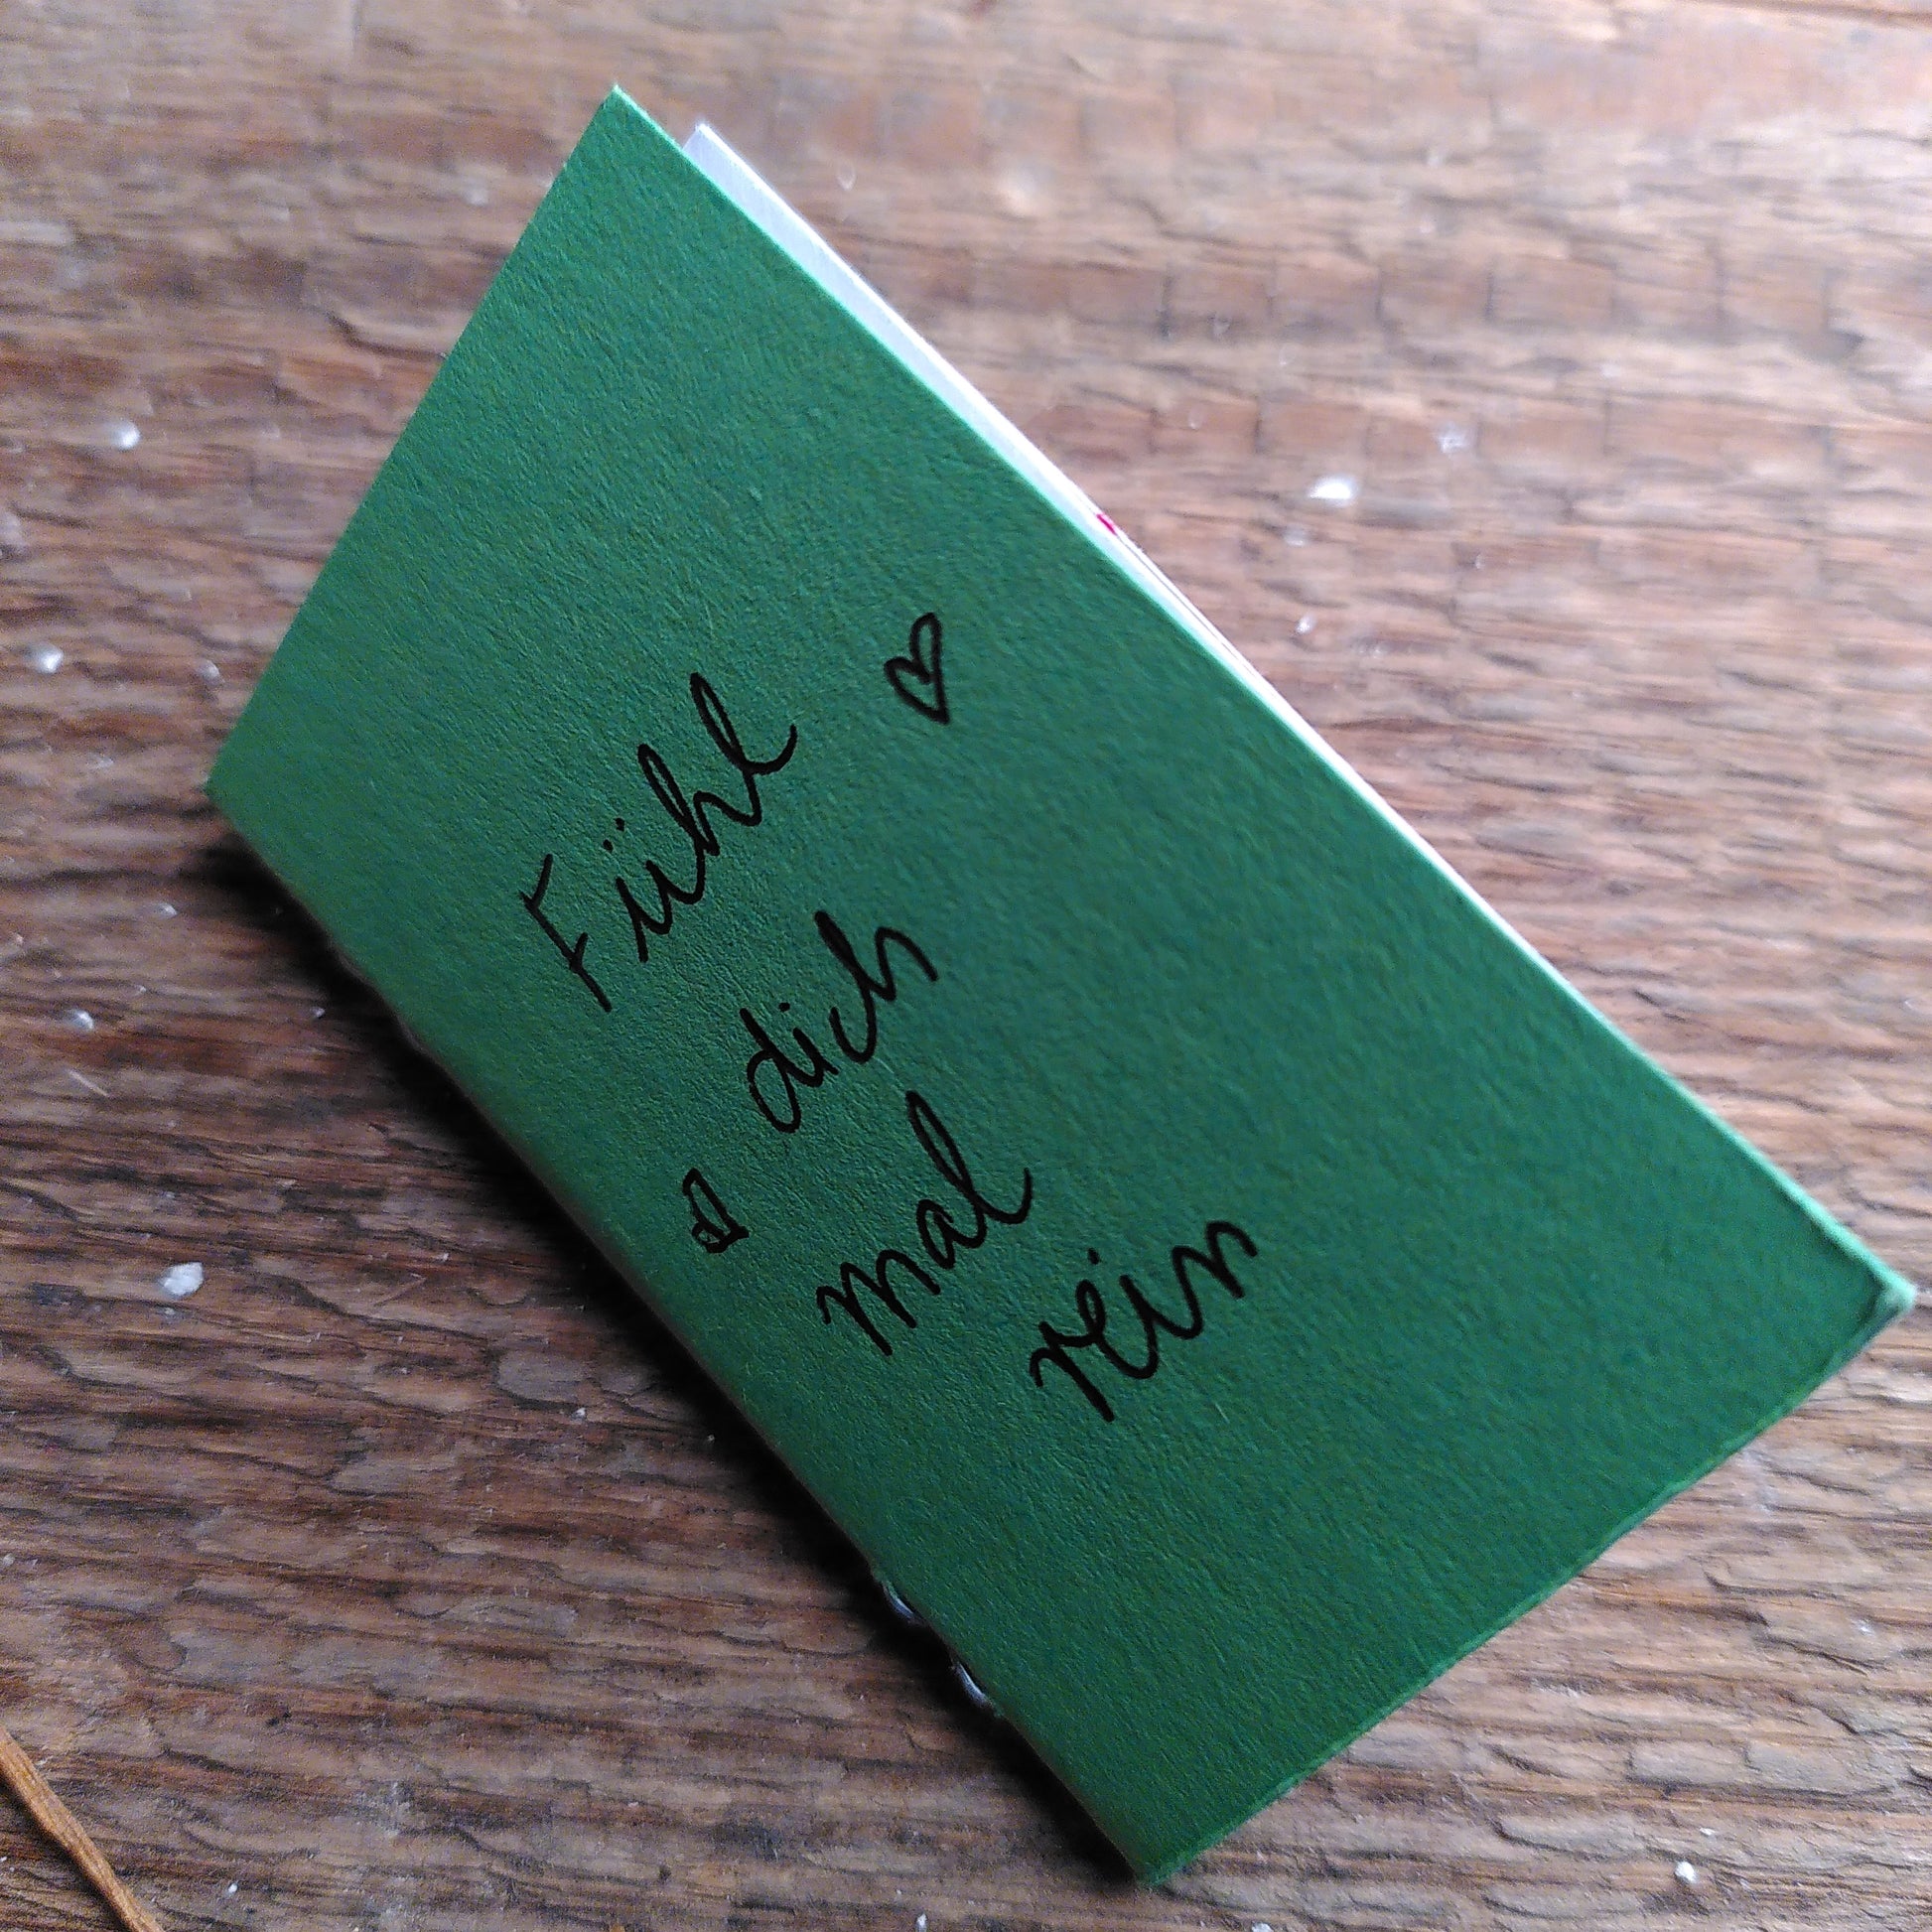 Fühl
dich
mal
rein